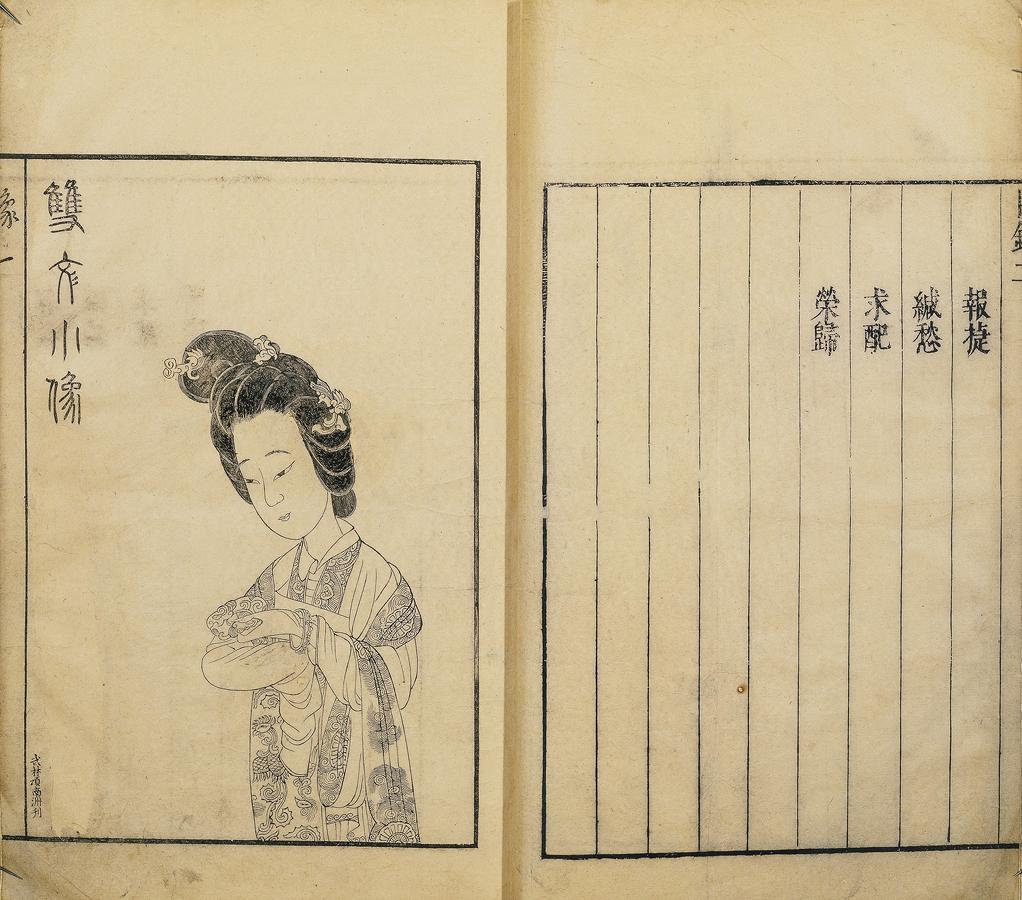 目錄 二
報捷
緘愁
求配
榮歸
雙文小像
武林項南洲刊
像 一